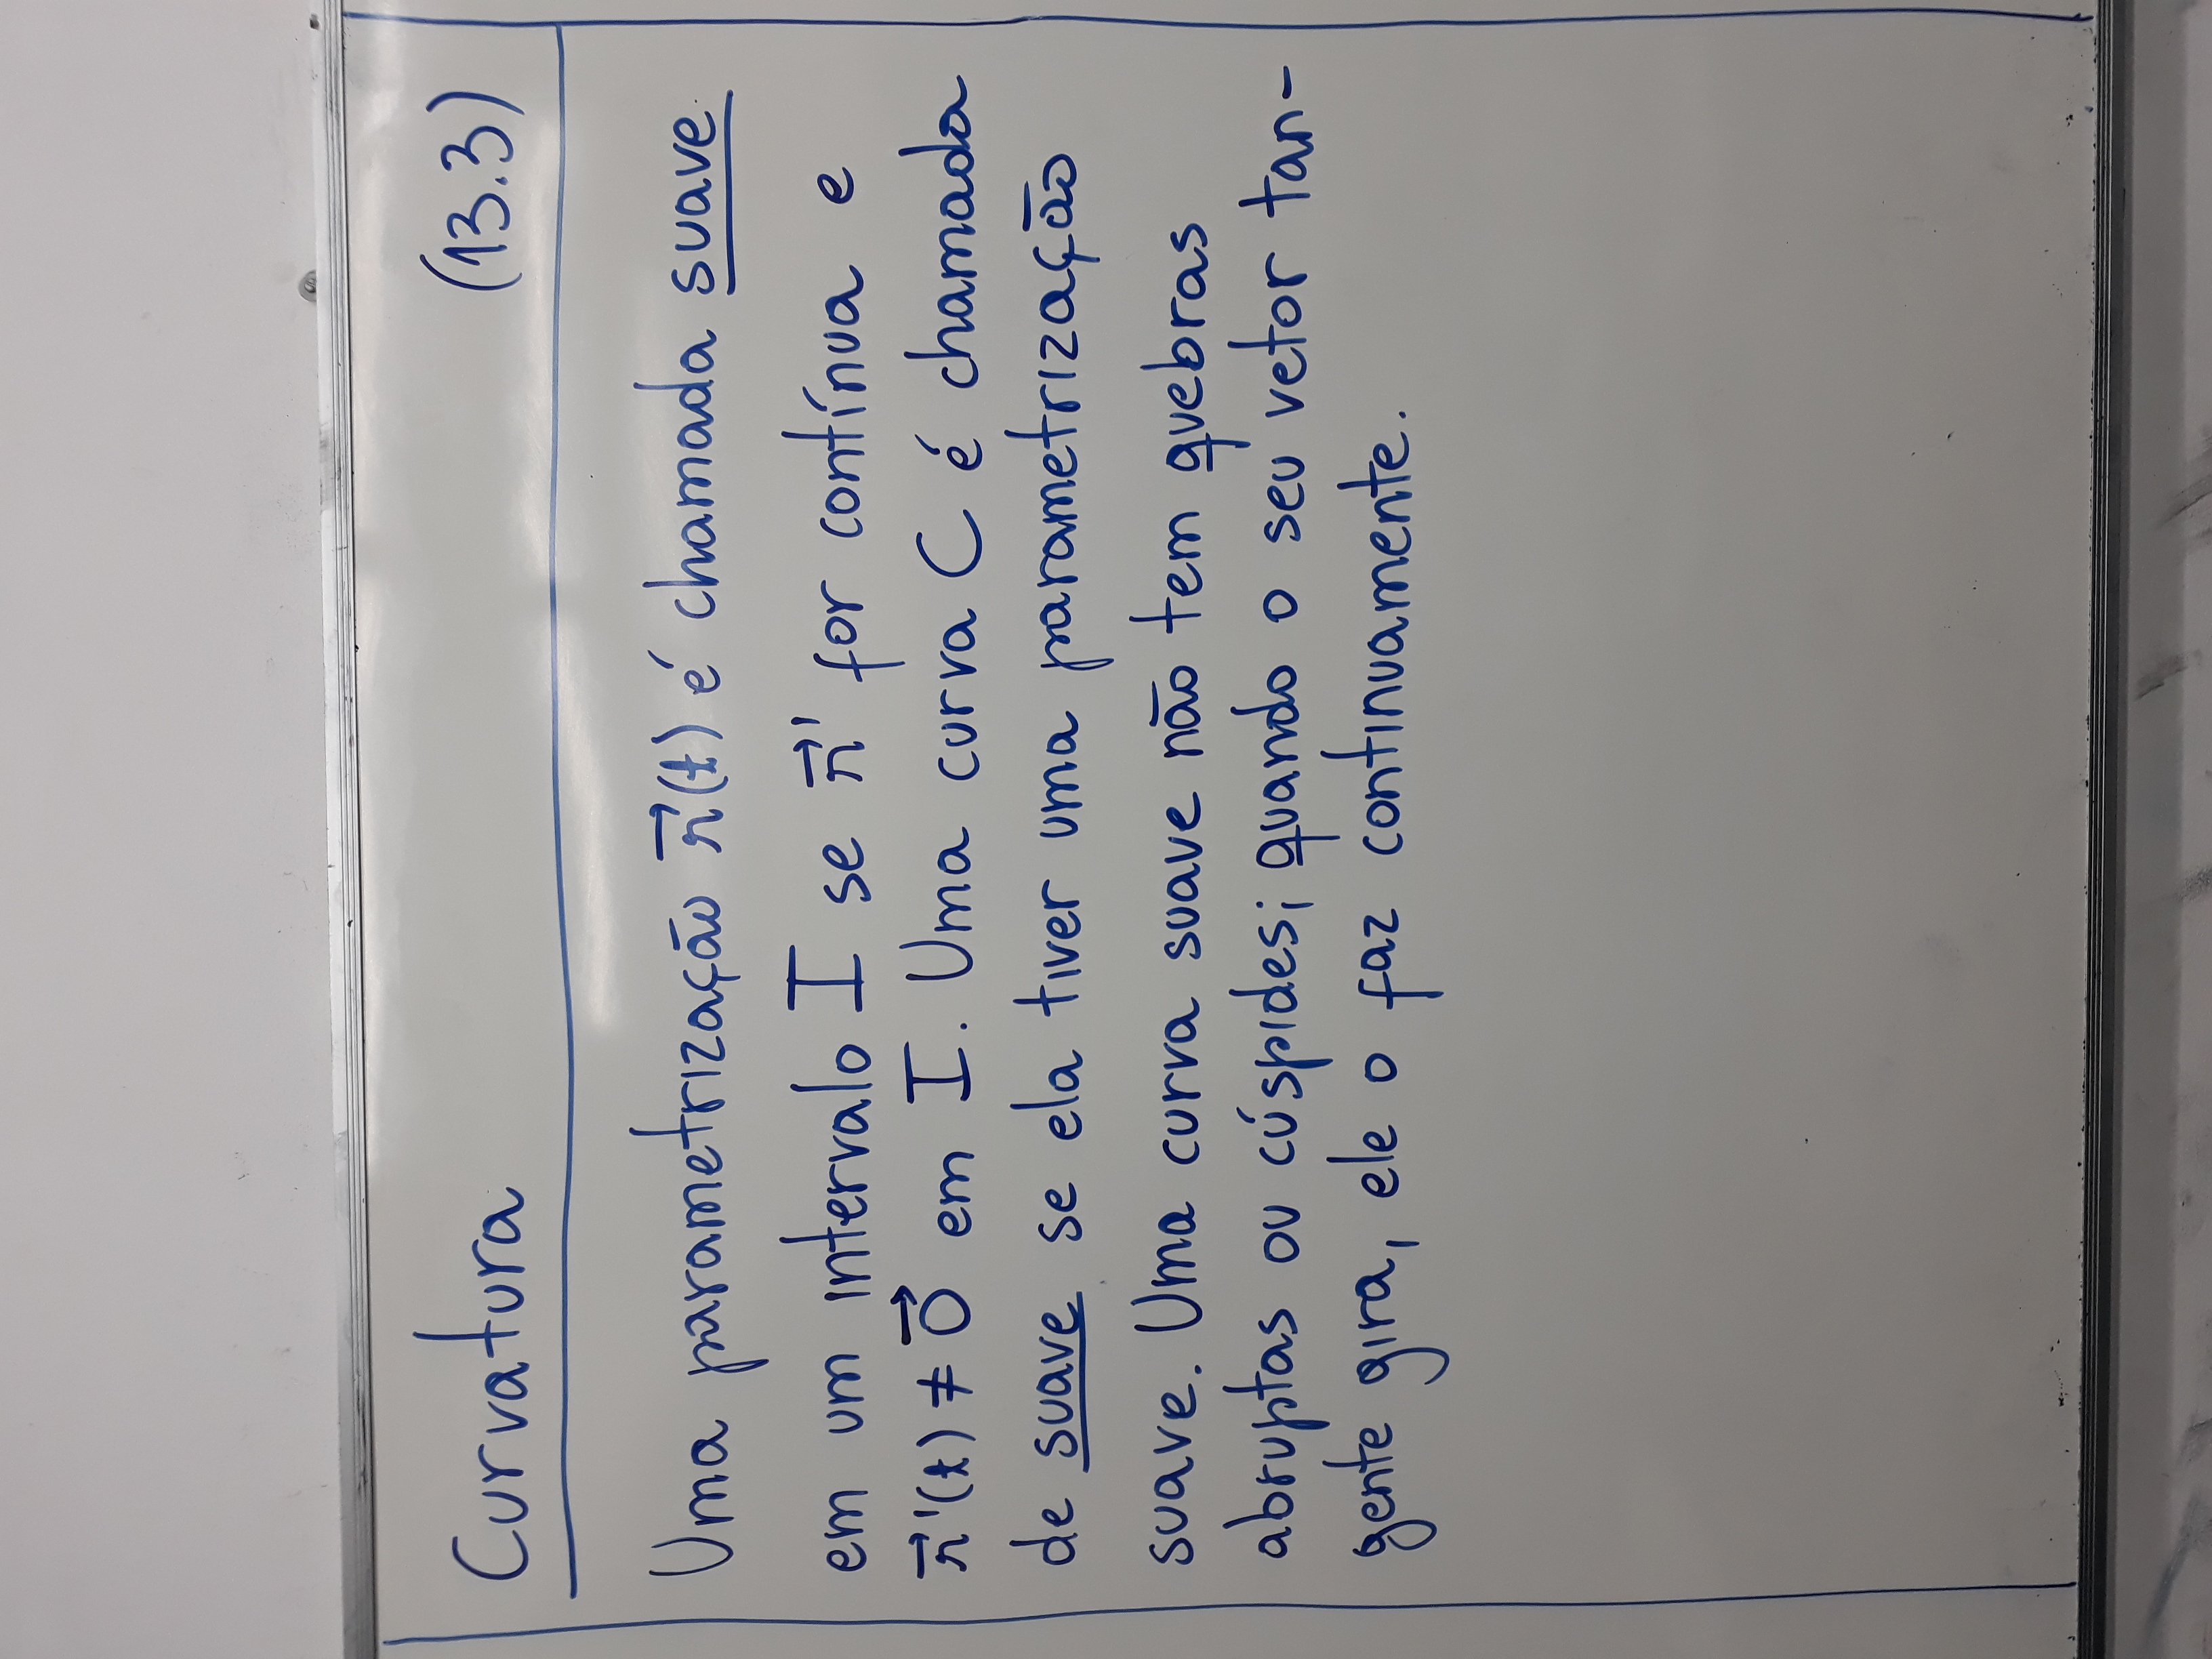 Curvatura (13.3)
Uma parametrização r⃗(t) é chamada suave
em um intervalo I se r⃗' for contínua e
r⃗'(t) ≠ 0⃗ em I. Uma curva C é chamada
de suave se ela tiver uma parametrização
suave. Uma curva suave não tem quebras
abruptas ou cúspides; quando o seu vetor tan-
gente gira, ele o faz continuamente.